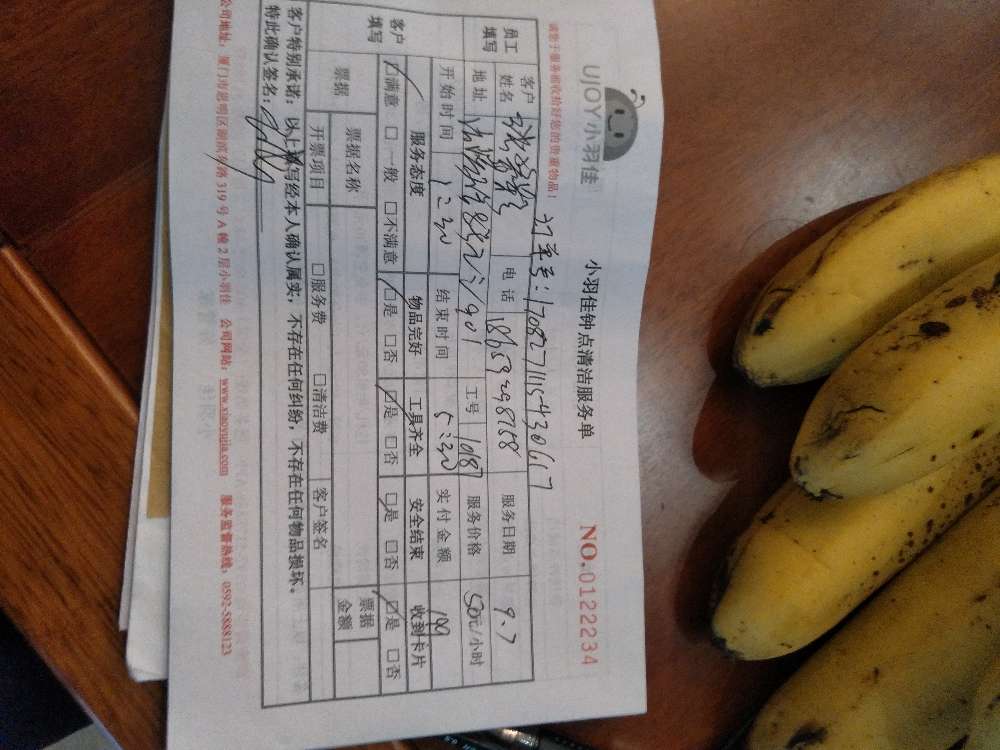 UJOY小羽佳
小羽佳钟点清洁服务单
NO.0122234
请您于服务前收拾好您的贵重物品!
订单号:170827111543061
员工填写
客户姓名 电话 服务日期 9.7
地址 工号 10187 服务价格 50元/小时
开始时间 1:30 结束时间 5:30 实付金额
客户填写
服务态度 物品完好 工具齐全 安全结束 收到卡片
□满意 □一般 □不满意 □是 □否 □是 □否 □是 □否 □是 □否
票据 票据名称 票据金额
开票项目 □服务费 □清洁费 客户签名
客户特别承诺:以上填写经本人确认属实,不存在任何纠纷,不存在任何物品损坏。
特此确认签名:
公司地址:厦门市思明区湖滨南路 319 号 A 幢 2 层小羽佳 公司网站:www.xiaoyujia.com 服务监督热线:0592-5888123